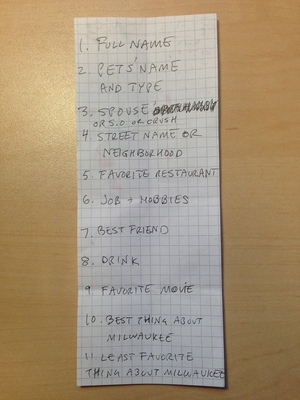 1. FULL NAME
2. PETS NAME
AND TYPE
3. SPOUSE
OR S.O OR CRUSH
4. STREET NAME OR
NEIGHBORHOOD
5. FAVORITE RESTAURANT
6. JOB + HOBBIES
7. BEST FRIEND
8. DRINK
9 FAVORITE MOVIE
10. BEST THING ABOUT
MILWAUKEE
11. LEAST FAVORITE
THING ABOUT MILWAUKEE